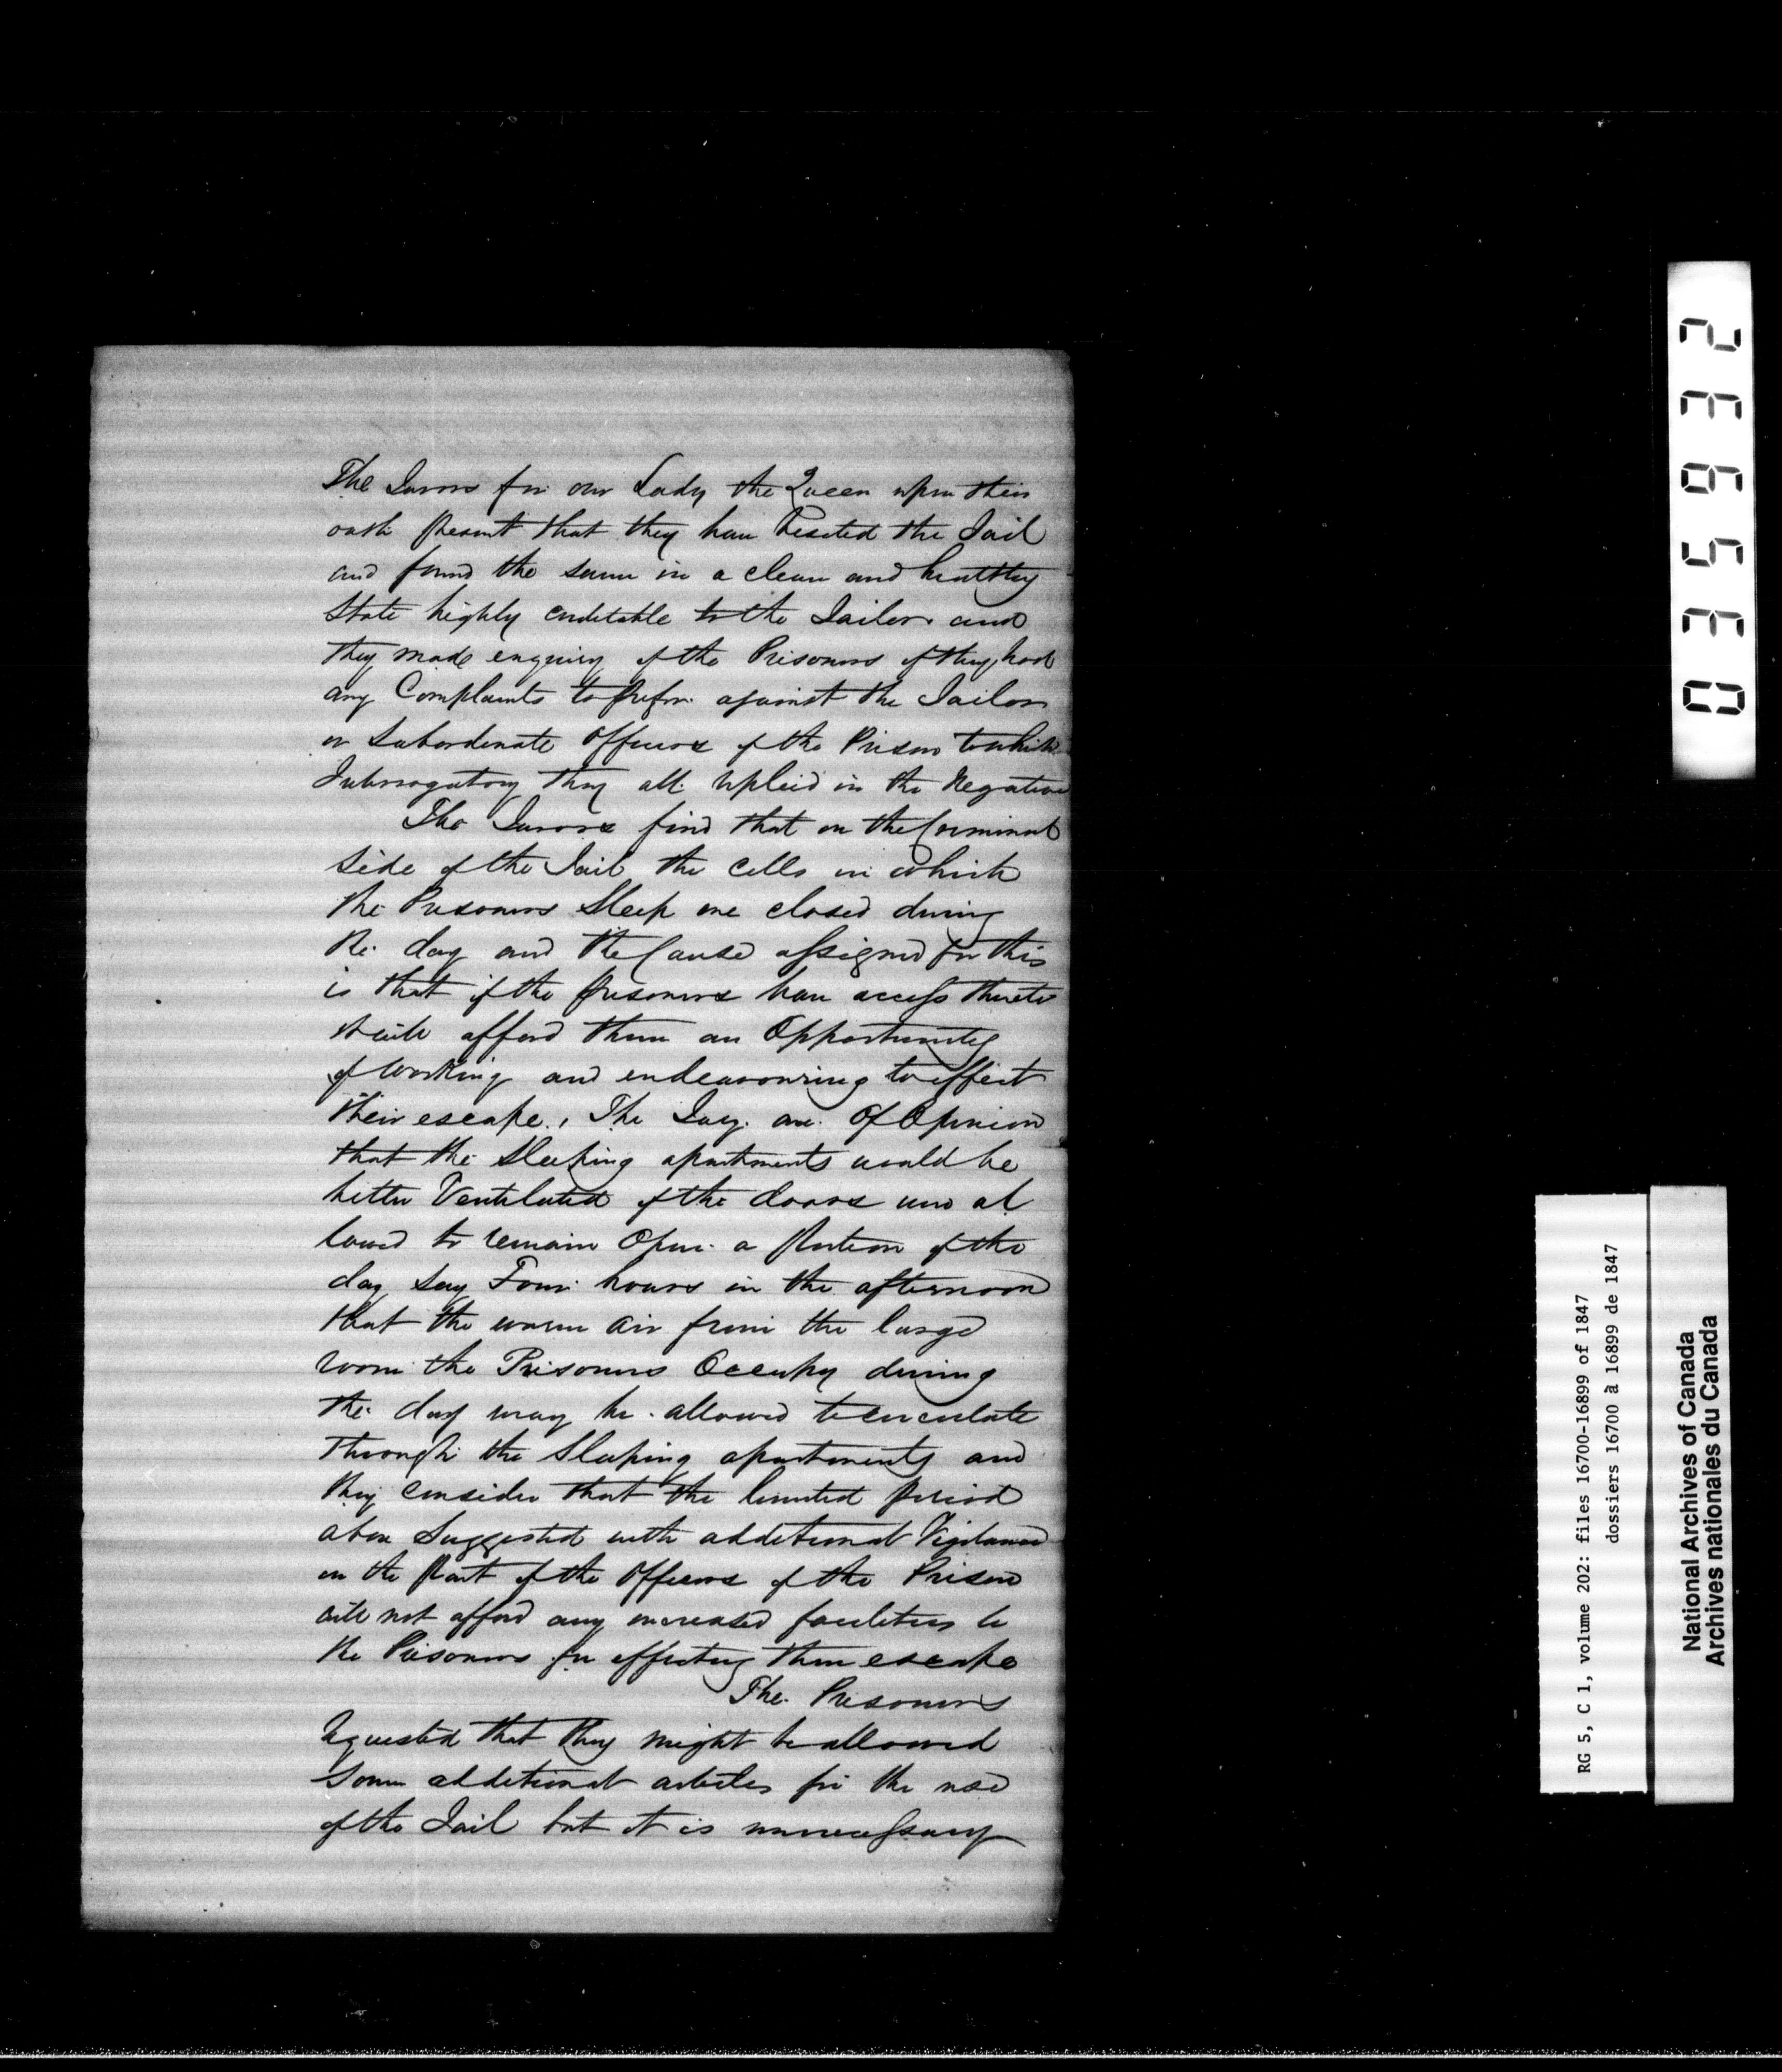 The Jurors for our Lady the Queen upon their
oath present that they have visited the Jail
and found the same in a clean and healthy
State highly creditable to the Jailor. and
they made enquiry of the Prisoners if they had
any Complaints to prefer against the Jailor
or Subordinate Officers of the Prison to which
Interrogatory they all replied in the Negative
The Jurors find that on the Criminal
side of the Jail the cells in which
the Prisoners Sleep are closed during
the day and the Cause assigned for this
is that if the prisoners have access thereto
it will afford them an Opportunity
of working and endeavouring to effect
their escape., The Jury. are. Of Opinion
that the Sleeping apartments would be
better Ventilated if the doors were al
lowed to remain Open. a portion of the
day say Four hours in the afternoon
that the warm air from the large
room the Prisoners Occupy during
the day may be allowed to circulate
through the Sleeping apartments and
they consider that the limited period
above Suggested with additional Vigilance
on the part of the Officers of the Prison
will not afford any increased facilities to
the Prisoners for effecting their escape
The Prisoners
requested that they might be allowed
some additional articles for the use
of the Jail but it is unnecessary
035932
RG 5, C 1, volume 202: files 16700-16899 of 1847
dossiers 16700 à 16899 de 1847
National Archives of Canada
Archives nationales du Canada